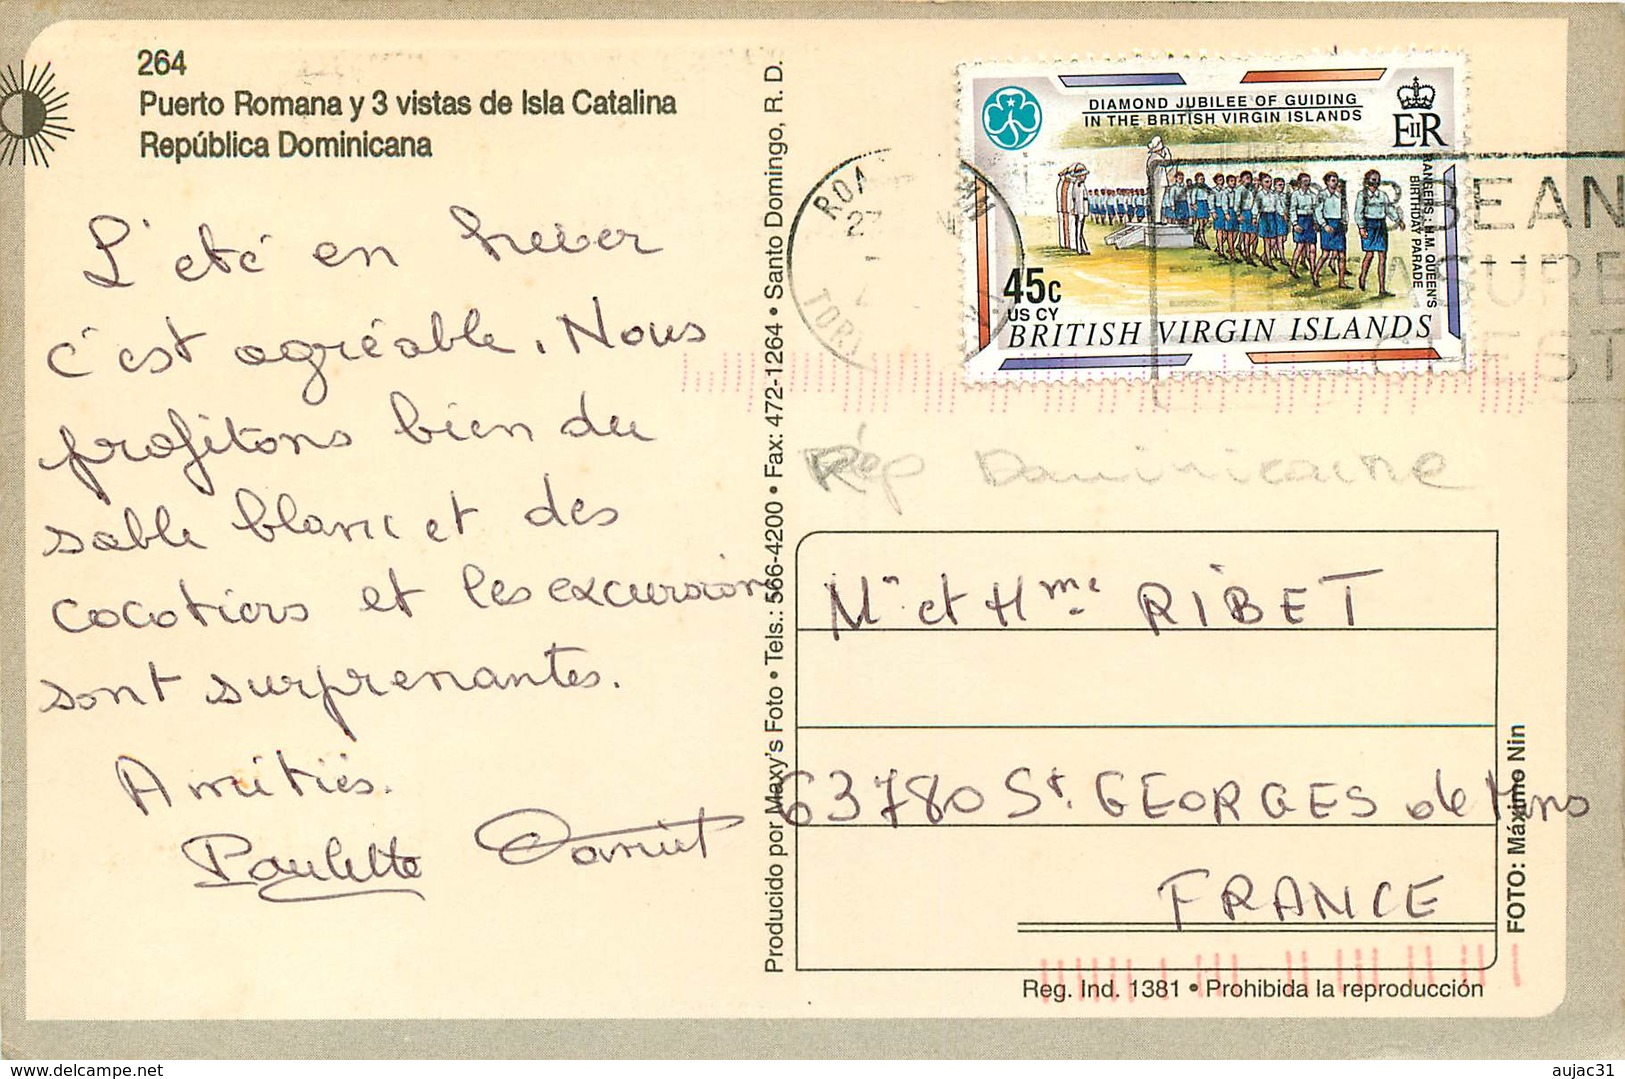 264
Puerto Romana y 3 vistas de Isla Catalina
República Dominicana
L'été en hiver
c'est agréable. Nous
profitons bien du
sable blanc et des
cocotiers et les excursions
sont surprenantes.
Amitiés.
Paulette
Producido por Maxy's Foto • Tels.: 566-4200 • Fax: 472-1264 • Santo Domingo, R. D.
DIAMOND JUBILEE OF GUIDING
IN THE BRITISH VIRGIN ISLANDS
EIIR
RANGERS : H.M. QUEEN'S
BIRTHDAY PARADE
45c
US CY
BRITISH VIRGIN ISLANDS
Rép Dominicaine
Mr et Mme RIBET
63780 St. GEORGES de Mons
FRANCE
FOTO: Máximo Nin
Reg. Ind. 1381 • Prohibida la reproducción
www.delcampe.net
aujac31